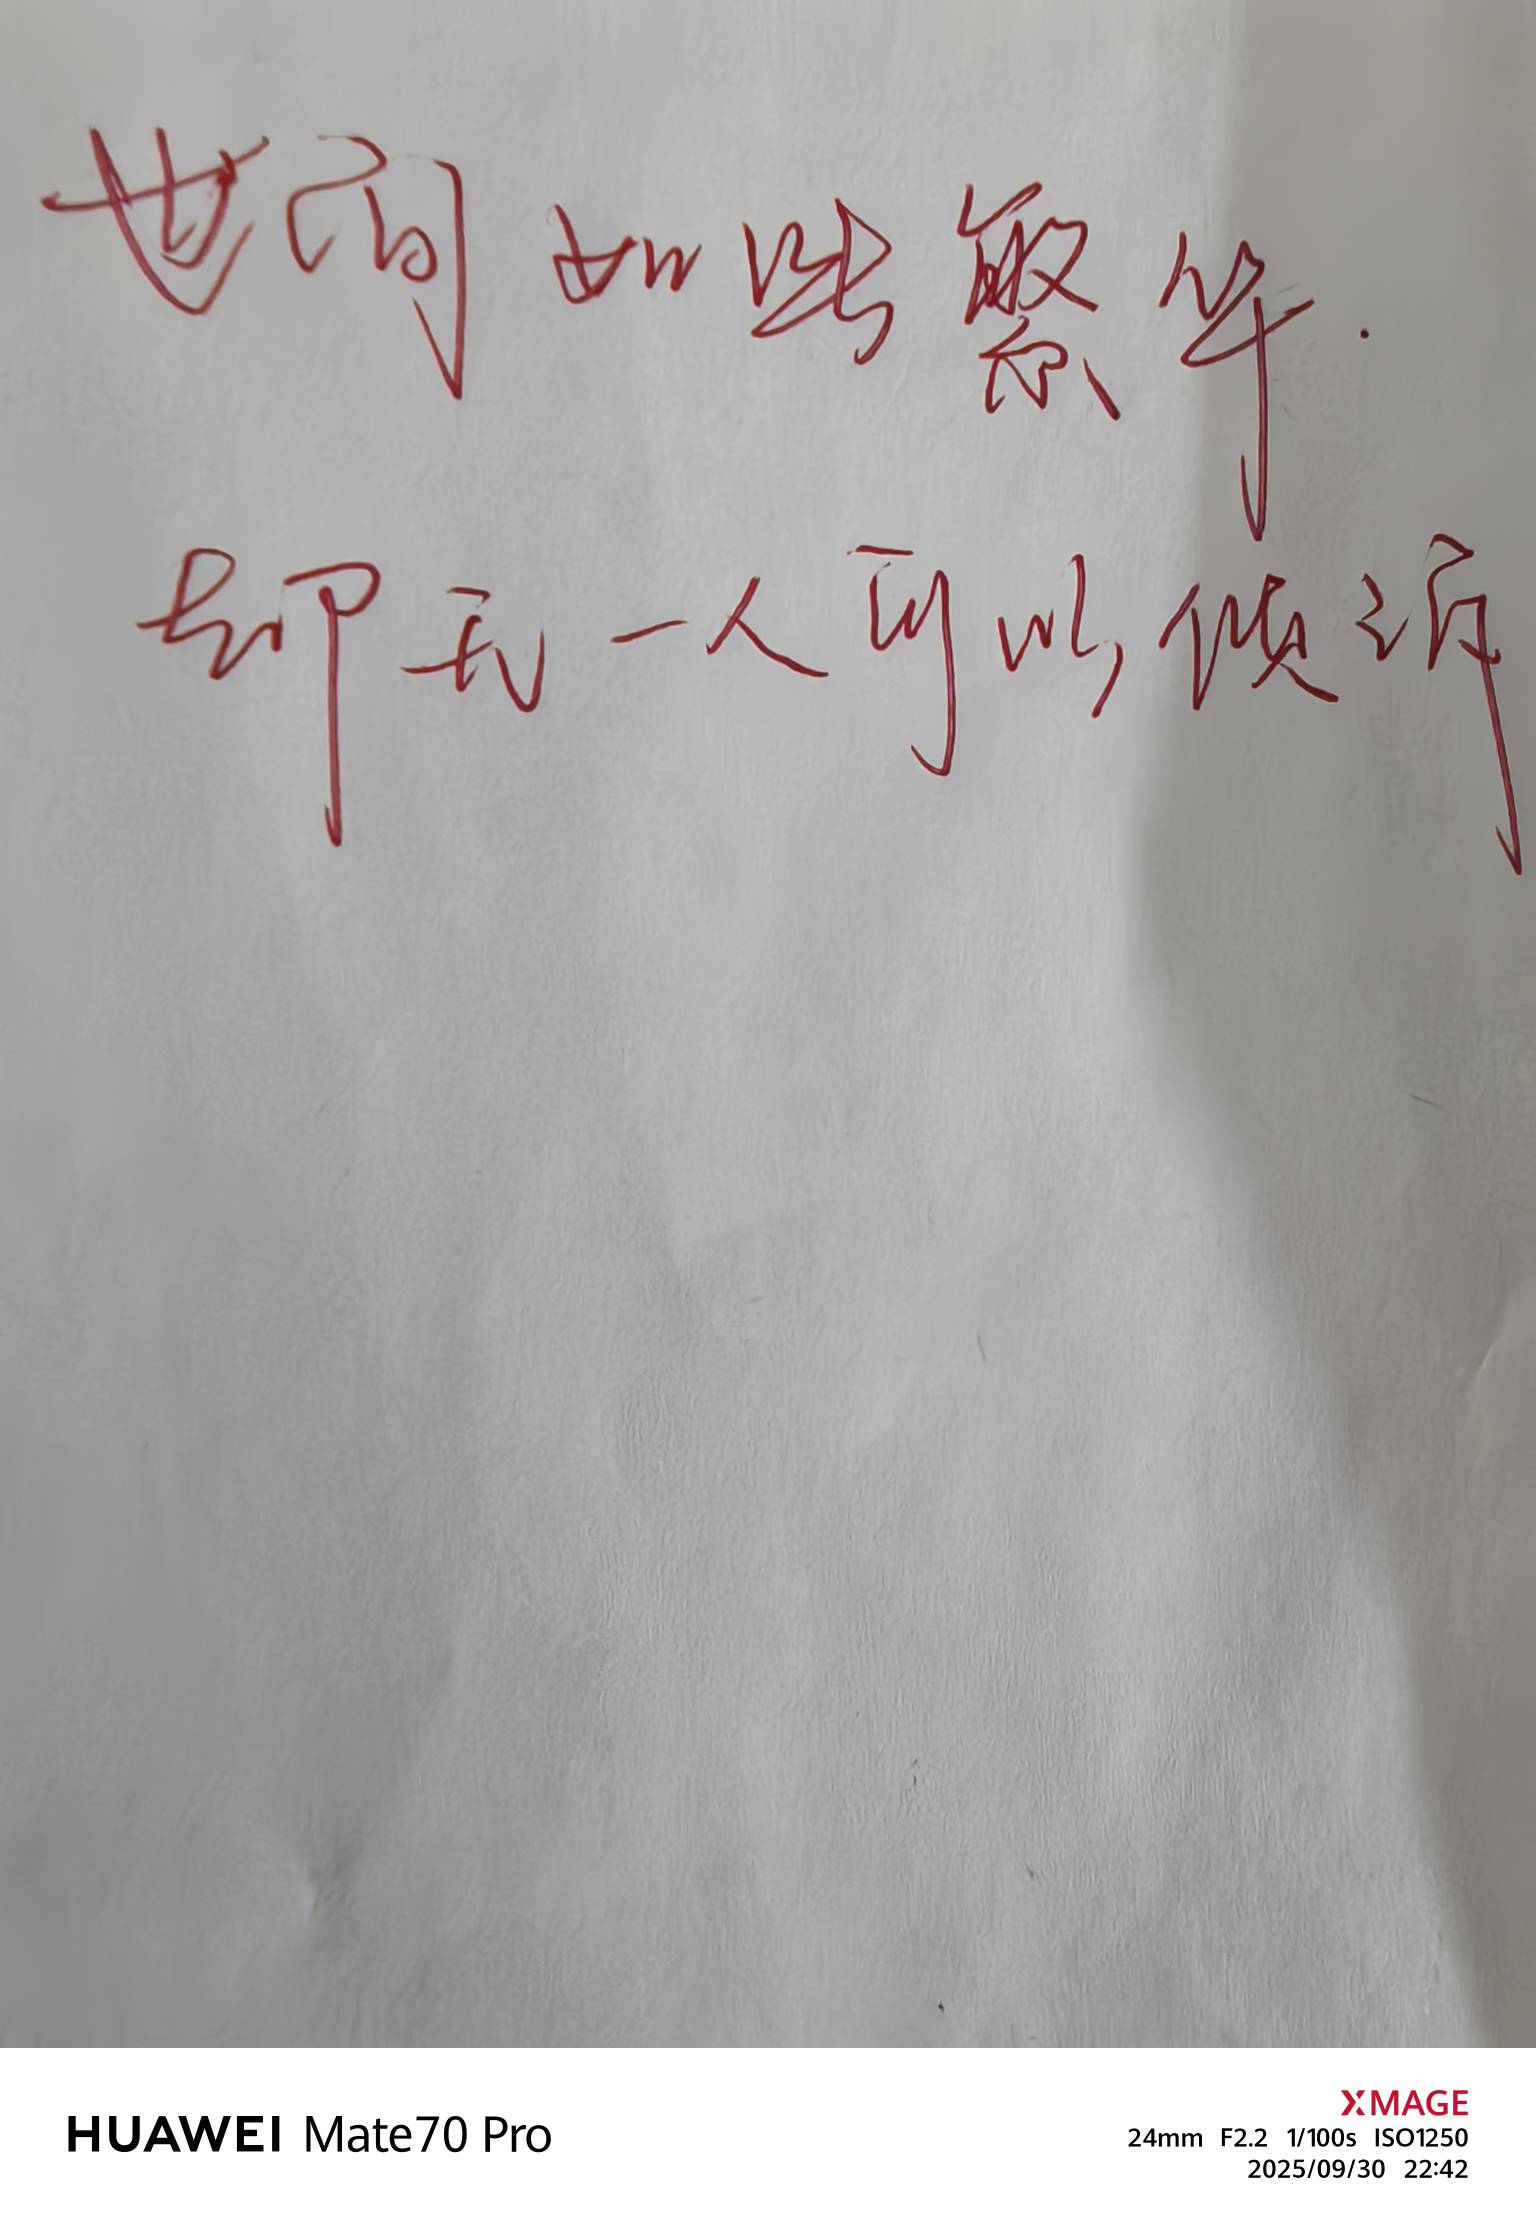 世间如此繁华.
却无一人可以倾诉
HUAWEI Mate70 Pro
XMAGE
24mm F2.2 1/100s ISO1250
2025/09/30 22:42